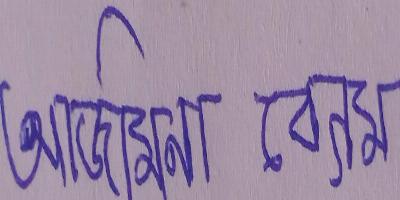 আর্জমিনা বেগম